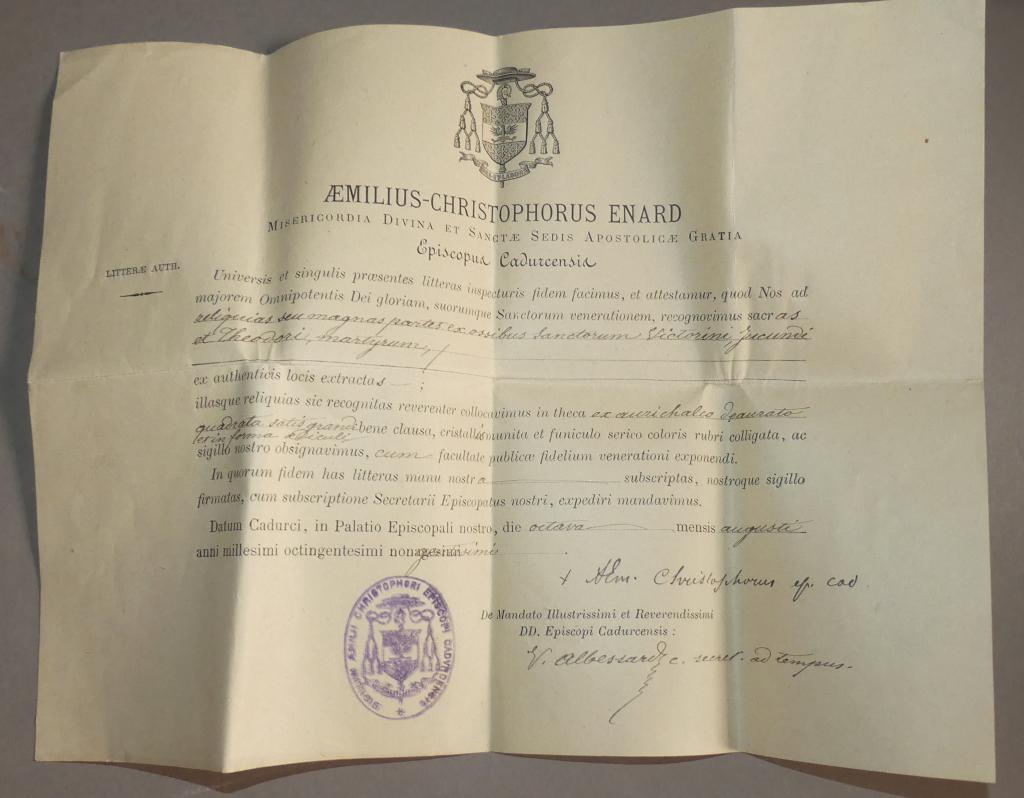 ÆMILIUS-CHRISTOPHORUS ENARD
MISERICORDIA DIVINA ET SANCTÆ SEDIS APOSTOLICÆ GRATIA
Episcopus Cadurcensis
LITTERÆ AUTH.
Universis et singulis præsentes litteras inspecturis fidem facimus, et attestamur, quod Nos ad
majorem Omnipotentis Dei gloriam, suorumque Sanctorum venerationem, recognovimus sacras
reliquias seu magnas partes ex ossibus Sanctorum Victorini, Jucundi
et Theodori, martyrum,
ex authenticis locis extractas ;
illasque reliquias sic recognitas reverenter collocavimus in theca ex aurichalco deaurato
quadrata satis grandi bene clausa, cristallis munita et funiculo serico coloris rubri colligata, ac
et in forma
sigillo nostro obsignavimus, cum facultate publicæ fidelium venerationi exponendi.
In quorum fidem has litteras manu nostra subscriptas, nostroque sigillo
firmatas, cum subscriptione Secretarii Episcopatus nostri, expediri mandavimus.
Datum Cadurci, in Palatio Episcopali nostro, die octava mensis augusti
anni millesimi octingentesimi nonagesimi
+ Æm. Christophorus ep. cad.
De Mandato Illustrissimi et Reverendissimi
DD. Episcopi Cadurcensis :
V. Albessard c. secret. ad tempus.
ÆMILII CHRISTOPHORI EPISCOPI CADURCENSIS